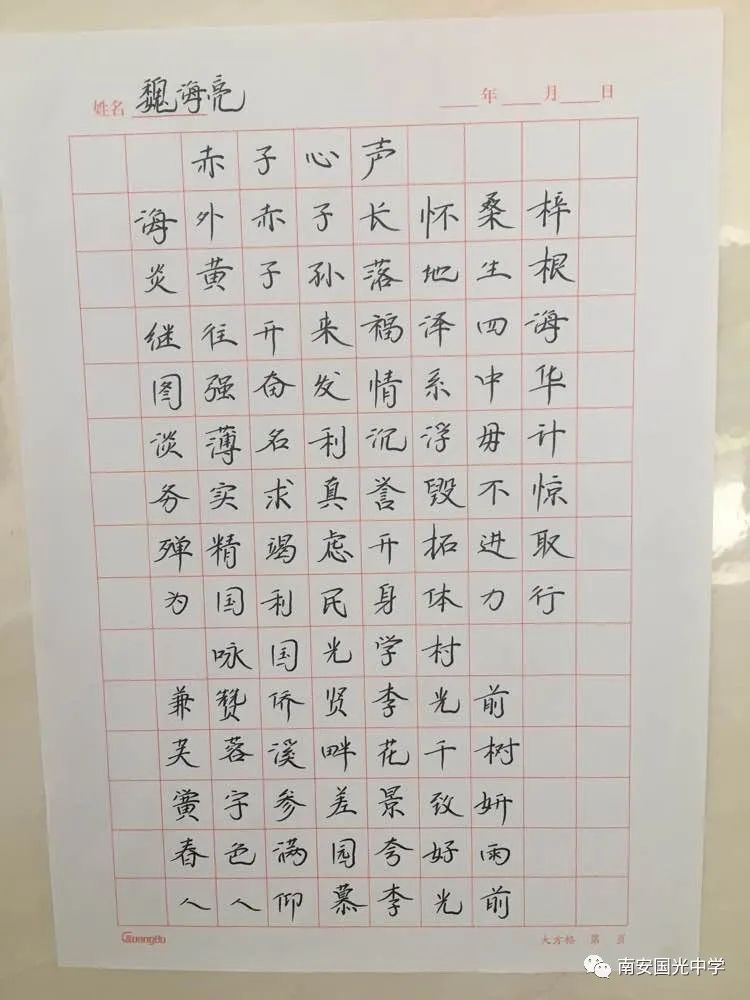 姓名 魏海亮 年 月 日
赤子心声
海外赤子长怀桑梓
炎黄子孙落地生根
继往开来福泽四海
图强奋发情系中华
淡薄名利沉浮毋计
务实求真誉毁不惊
殚精竭虑开拓进取
为国利民身体力行
咏国光学村
兼赞侨贤李光前
芙蓉溪畔花千树
黉宇参差景致妍
春色满园夸好雨
人人仰慕李光前
GuangBo 大方格 第 页
南安国光中学